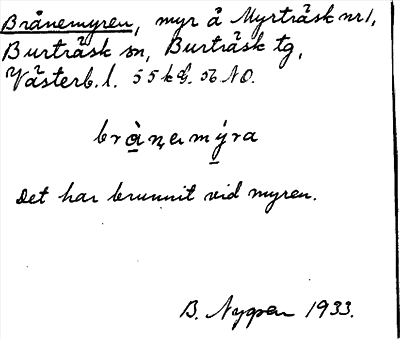 Brånemyren, myr å Myrträsk nr 1,
Burträsk sn, Burträsk tg,
Västerb. l. 55 k bl. 56 NO.
brå̀nɐmýra
Det har brunnit vid myren.
B. Nygren 1933.